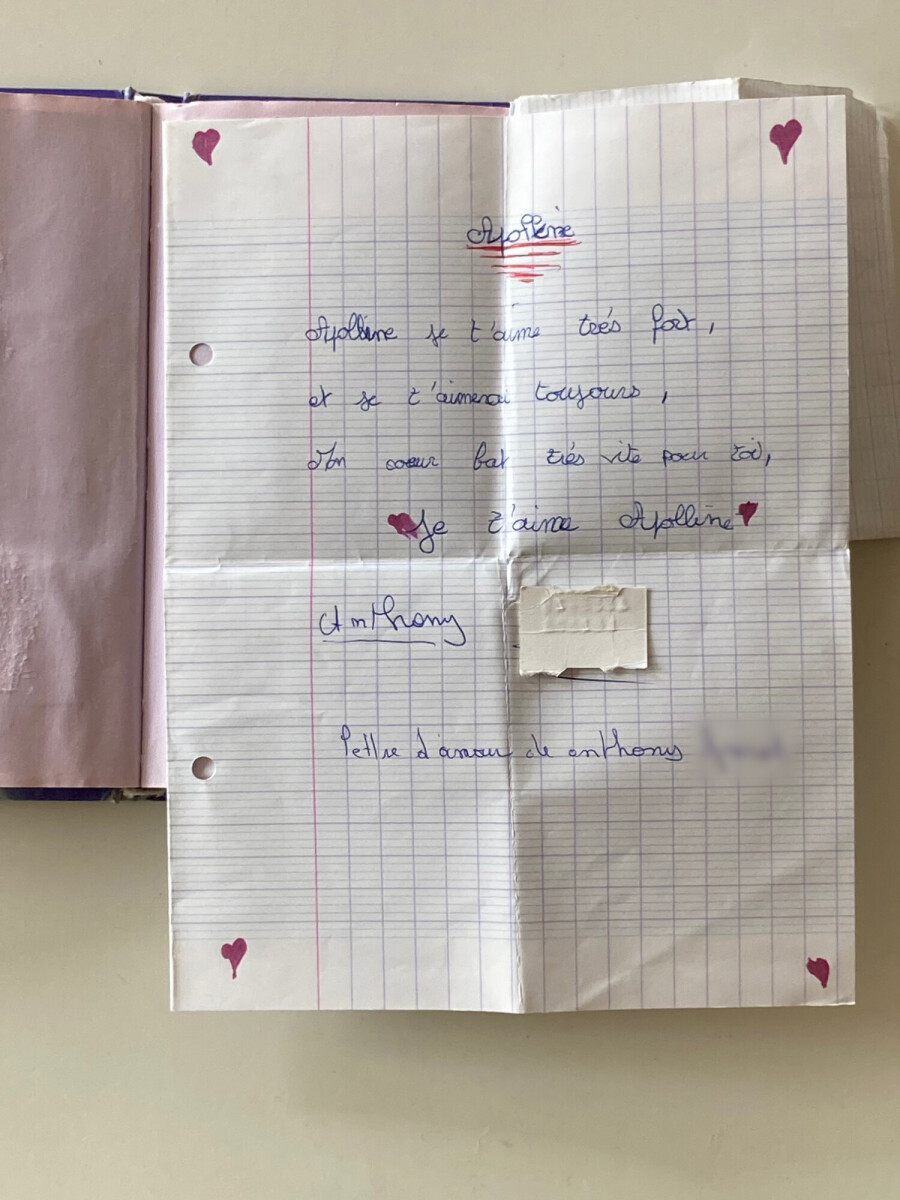 Apolline
Apolline je t'aime trés fort,
et je t'aimerai toujours,
Mon coeur bat trés vite pour toi,
Je t'aime Apolline
Anthony
lettre d'amour de anthony